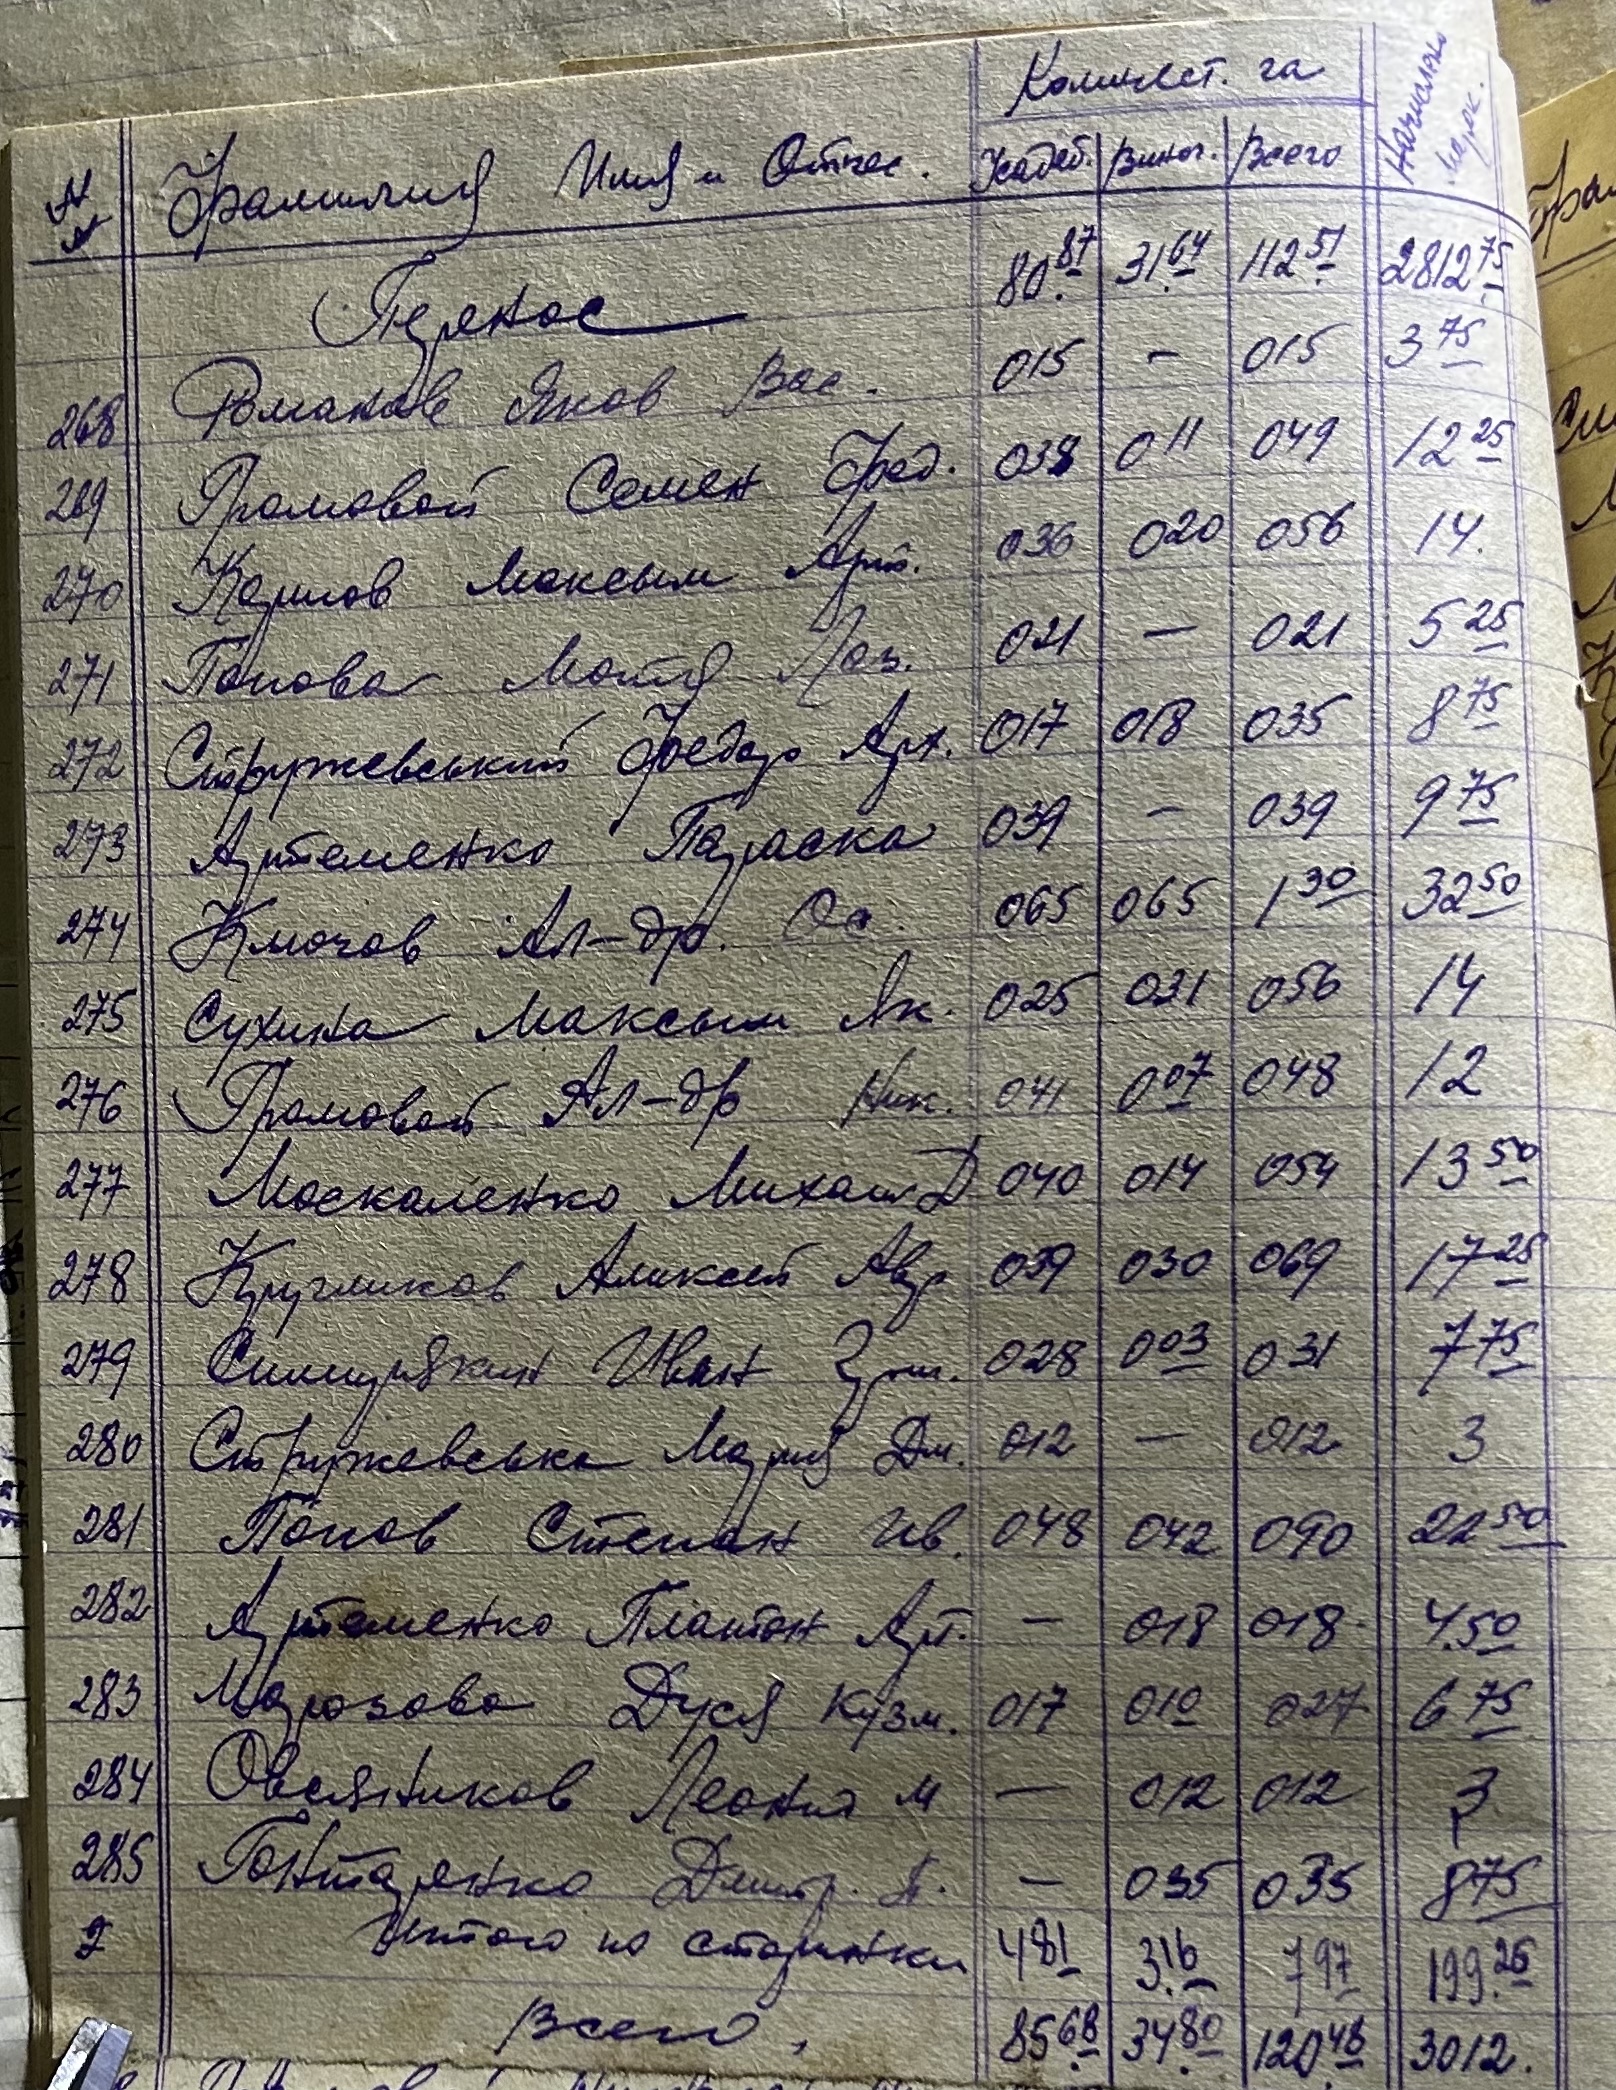 Количест. га Начислено черк.
№№ Фамилия Имя и Отчес. Усадеб. Виног. Всего
Перенос 80.87 31.64 112.51 2812.75
268 Романов Яков Вас. 015 — 015 3 75
269 Громовой Семен Фед. 038 011 049 12 25
270 Карпов Максым Арт. 036 020 056 14.
271 Попова Мотя Лаз. 021 — 021 5 25
272 Стружевський Федор Арх. 017 018 035 8 75
273 Артеменко Параска 039 — 039 9 75
274 Ключов Ал-др. Ос. 065 065 1 30 32 50
275 Сухина Максым Як. 025 031 056 14
276 Громовой Ал-др Ник. 041 007 048 12
277 Москаленко Михаил Д 040 014 054 13 50
278 Кругликов Алексей Авр 039 030 069 17 25
279 Симирякин Иван Гри. 028 003 031 7 75
280 Стружевська Мария Дм. 012 — 012 3
281 Попов Степан Ив. 048 042 090 22 50
282 Артеменко Плантон Арт. — 018 018 4.50
283 Марозова Дуся Кузм. 017 010 027 6 75
284 Овсяников Леонид И — 012 012 3
285 Гонтаренко Дмитр. П. — 035 035 8 75
Итого по сторинки 4 81 3.16 7 97 199.25
Всего 85.68 34.80 120.48 3012.